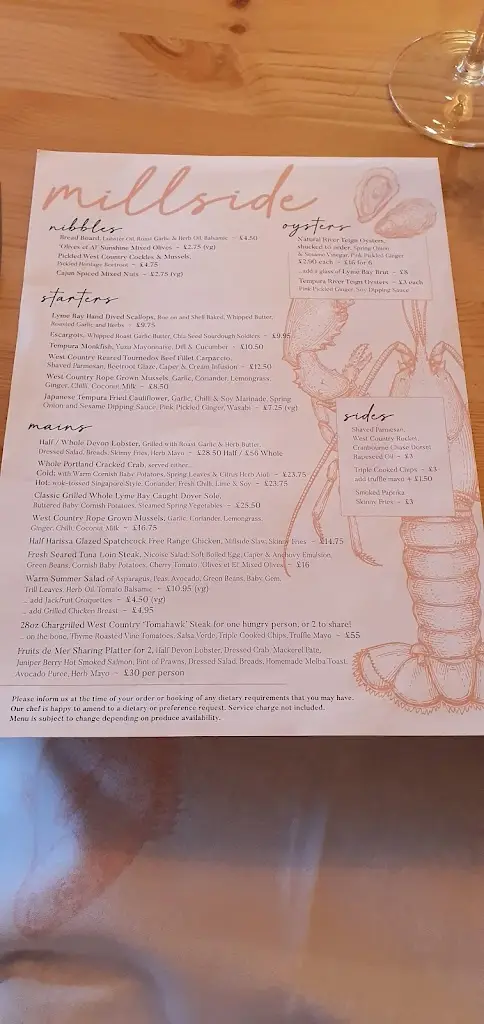 millside
nibbles
Bread Board, Lobster Oil, Roast Garlic & Herb Oil, Balsamic ~ £4.50
'Olives et Al' Sunshine Mixed Olives ~ £2.75 (vg)
Pickled West Country Cockles & Mussels,
Pickled Heritage Beetroot ~ £4.75
Cajun Spiced Mixed Nuts ~ £2.75 (vg)
oysters
Natural River Teign Oysters,
shucked to order, Spring Onion
& Sesame Vinegar, Pink Pickled Ginger
£2.90 each ~ £16 for 6
.. add a glass of Lyme Bay Brut ~ £8
Tempura River Teign Oysters ~ £3 each
Pink Pickled Ginger, Soy Dipping Sauce
starters
Lyme Bay Hand Dived Scallops, Roe on and Shell Baked, Whipped Butter,
Roasted Garlic and Herbs ~ £9.75
Escargots, Whipped Roast Garlic Butter, Chia Seed Sourdough Soldiers ~ £9.95
Tempura Monkfish, Yuzu Mayonnaise, Dill & Cucumber ~ £10.50
West Country Reared Tournedos Beef Fillet Carpaccio,
Shaved Parmesan, Beetroot Glaze, Caper & Cream Emulsion ~ £12.50
West Country Rope Grown Mussels, Garlic, Coriander, Lemongrass,
Ginger, Chilli, Coconut Milk ~ £8.50
Japanese Tempura Fried Cauliflower, Garlic, Chilli & Soy Marinade, Spring
Onion and Sesame Dipping Sauce, Pink Pickled Ginger, Wasabi ~ £7.25 (vg)
sides
Shaved Parmesan,
West Country Rocket,
Cranbourne Chase Dorset
Rapeseed Oil ~ £3
Triple Cooked Chips ~ £3
add truffle mayo + £1.50
Smoked Paprika
Skinny Fries ~ £3
mains
Half / Whole Devon Lobster, Grilled with Roast Garlic & Herb Butter,
Dressed Salad, Breads, Skinny Fries, Herb Mayo ~ £28.50 Half / £56 Whole
Whole Portland Cracked Crab, served either..
Cold; with Warm Cornish Baby Potatoes, Spring Leaves & Citrus Herb Aioli ~ £23.75
Hot; wok-tossed Singapore Style, Coriander, Fresh Chilli, Lime & Soy ~ £23.75
Classic Grilled Whole Lyme Bay Caught Dover Sole,
Buttered Baby Cornish Potatoes, Steamed Spring Vegetables ~ £25.50
West Country Rope Grown Mussels, Garlic, Coriander, Lemongrass,
Ginger, Chilli, Coconut Milk ~ £16.75
Half Harissa Glazed Spatchcock, Free Range Chicken, Millside Slaw, Skinny Fries ~ £14.75
Fresh Seared Tuna Loin Steak, Nicoise Salad; Soft Boiled Egg, Caper & Anchovy Emulsion,
Green Beans, Cornish Baby Potatoes, Cherry Tomato, 'Olives et Al' Mixed Olives ~ £16
Warm Summer Salad of Asparagus, Peas, Avocado, Green Beans, Baby Gem,
Trill Leaves, Herb Oil, Tomato Balsamic ~ £10.95 (vg)
.. add Jackfruit Croquettes ~ £4.50 (vg)
.. add Grilled Chicken Breast ~ £4.95
28oz Chargrilled West Country 'Tomahawk' Steak for one hungry person, or 2 to share!
.. on the bone, Thyme Roasted Vine Tomatoes, Salsa Verde, Triple Cooked Chips, Truffle Mayo ~ £55
Fruits de Mer Sharing Platter for 2, Half Devon Lobster, Dressed Crab, Mackerel Pate,
Juniper Berry Hot Smoked Salmon, Pint of Prawns, Dressed Salad, Breads, Homemade Melba Toast,
Avocado Puree, Herb Mayo ~ £30 per person
Please inform us at the time of your order or booking of any dietary requirements that you may have.
Our chef is happy to amend to a dietary or preference request. Service charge not included.
Menu is subject to change depending on produce availability.